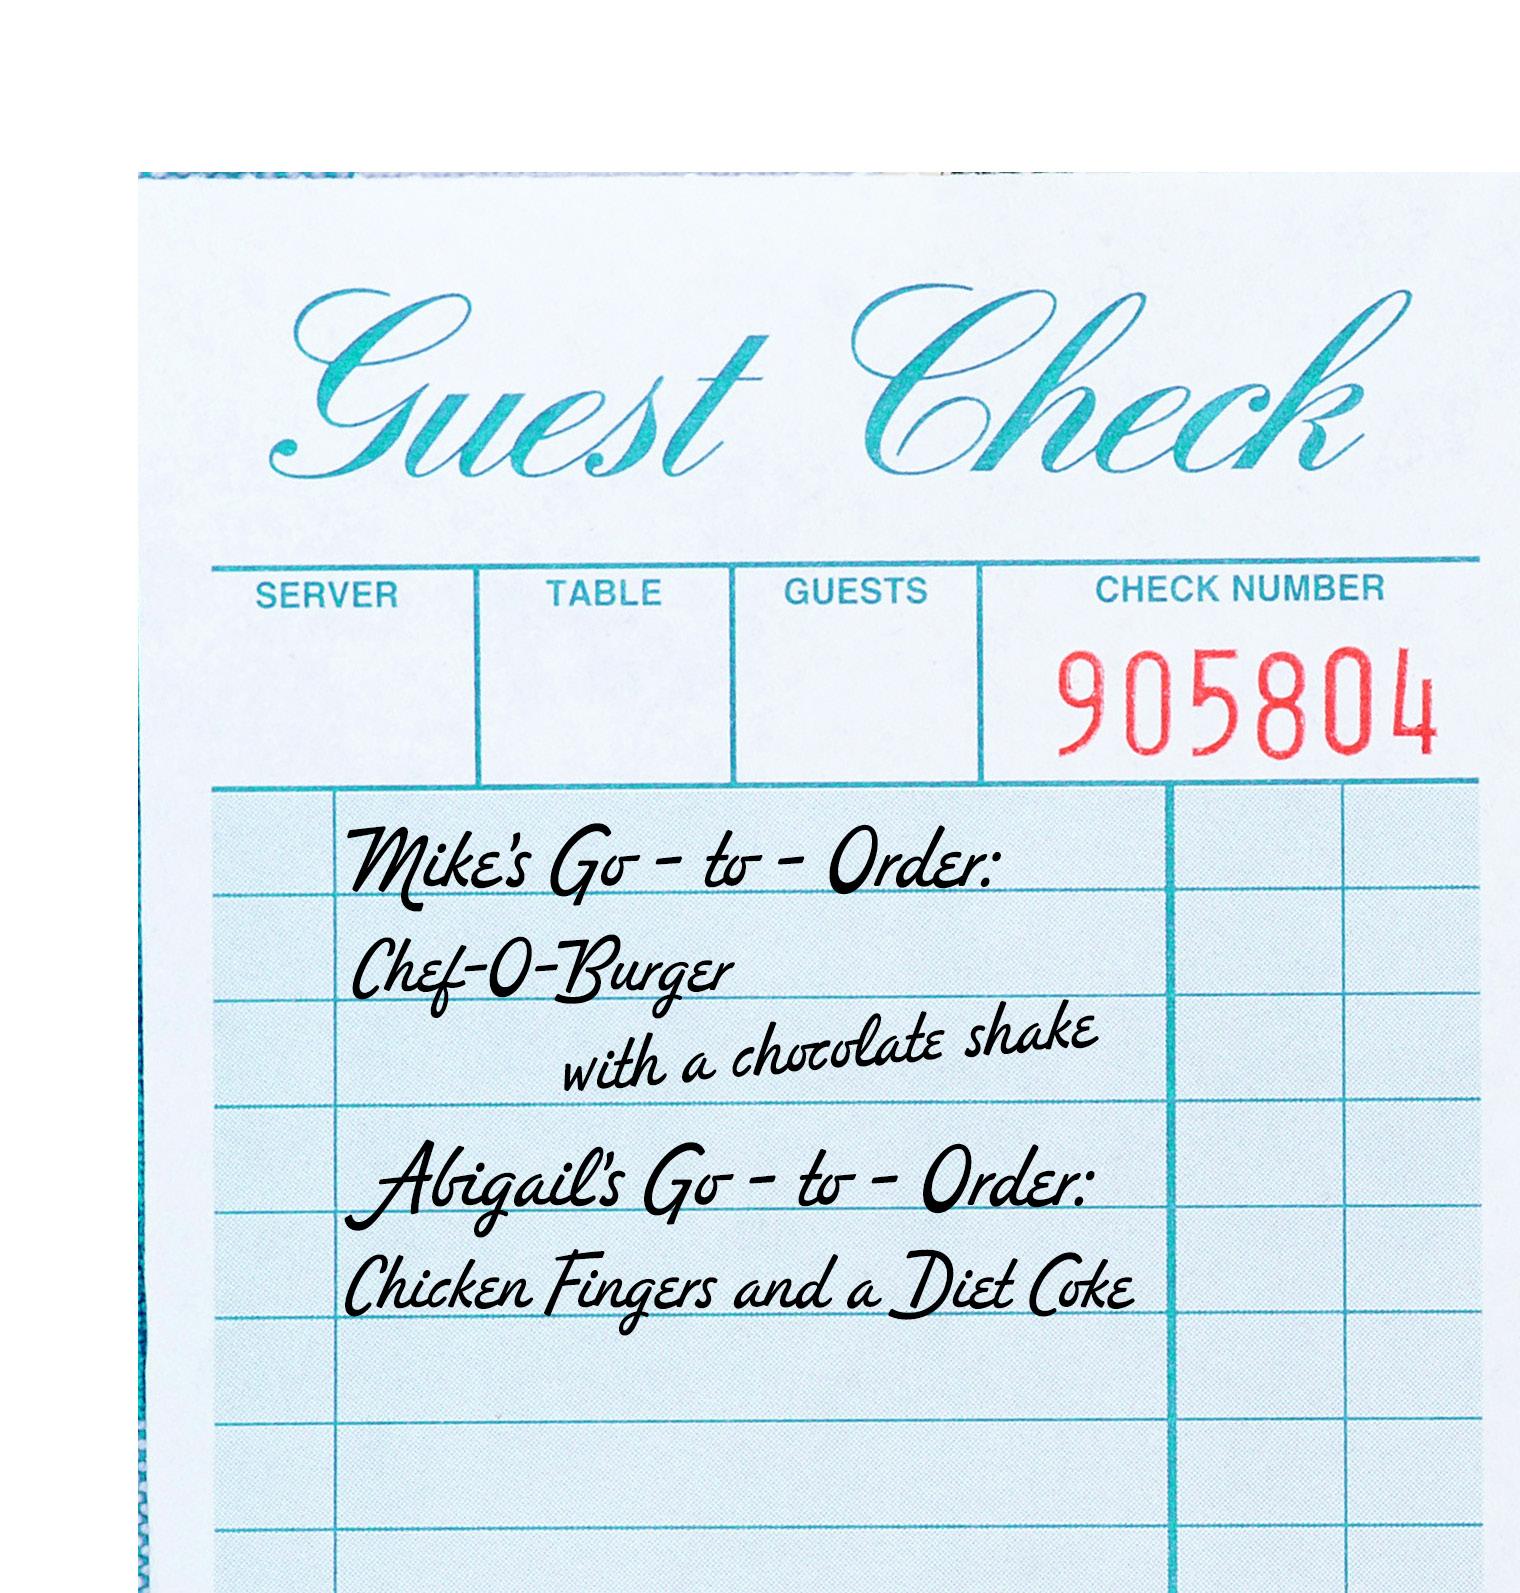 Guest Check
SERVER TABLE GUESTS CHECK NUMBER
905804
Mike's Go - to - Order:
Chef-O-Burger
with a chocolate shake
Abigail's Go - to - Order:
Chicken Fingers and a Diet Coke